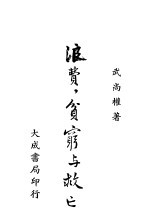 武尚權著
浪費,貧窮与救亡
大成書局印行